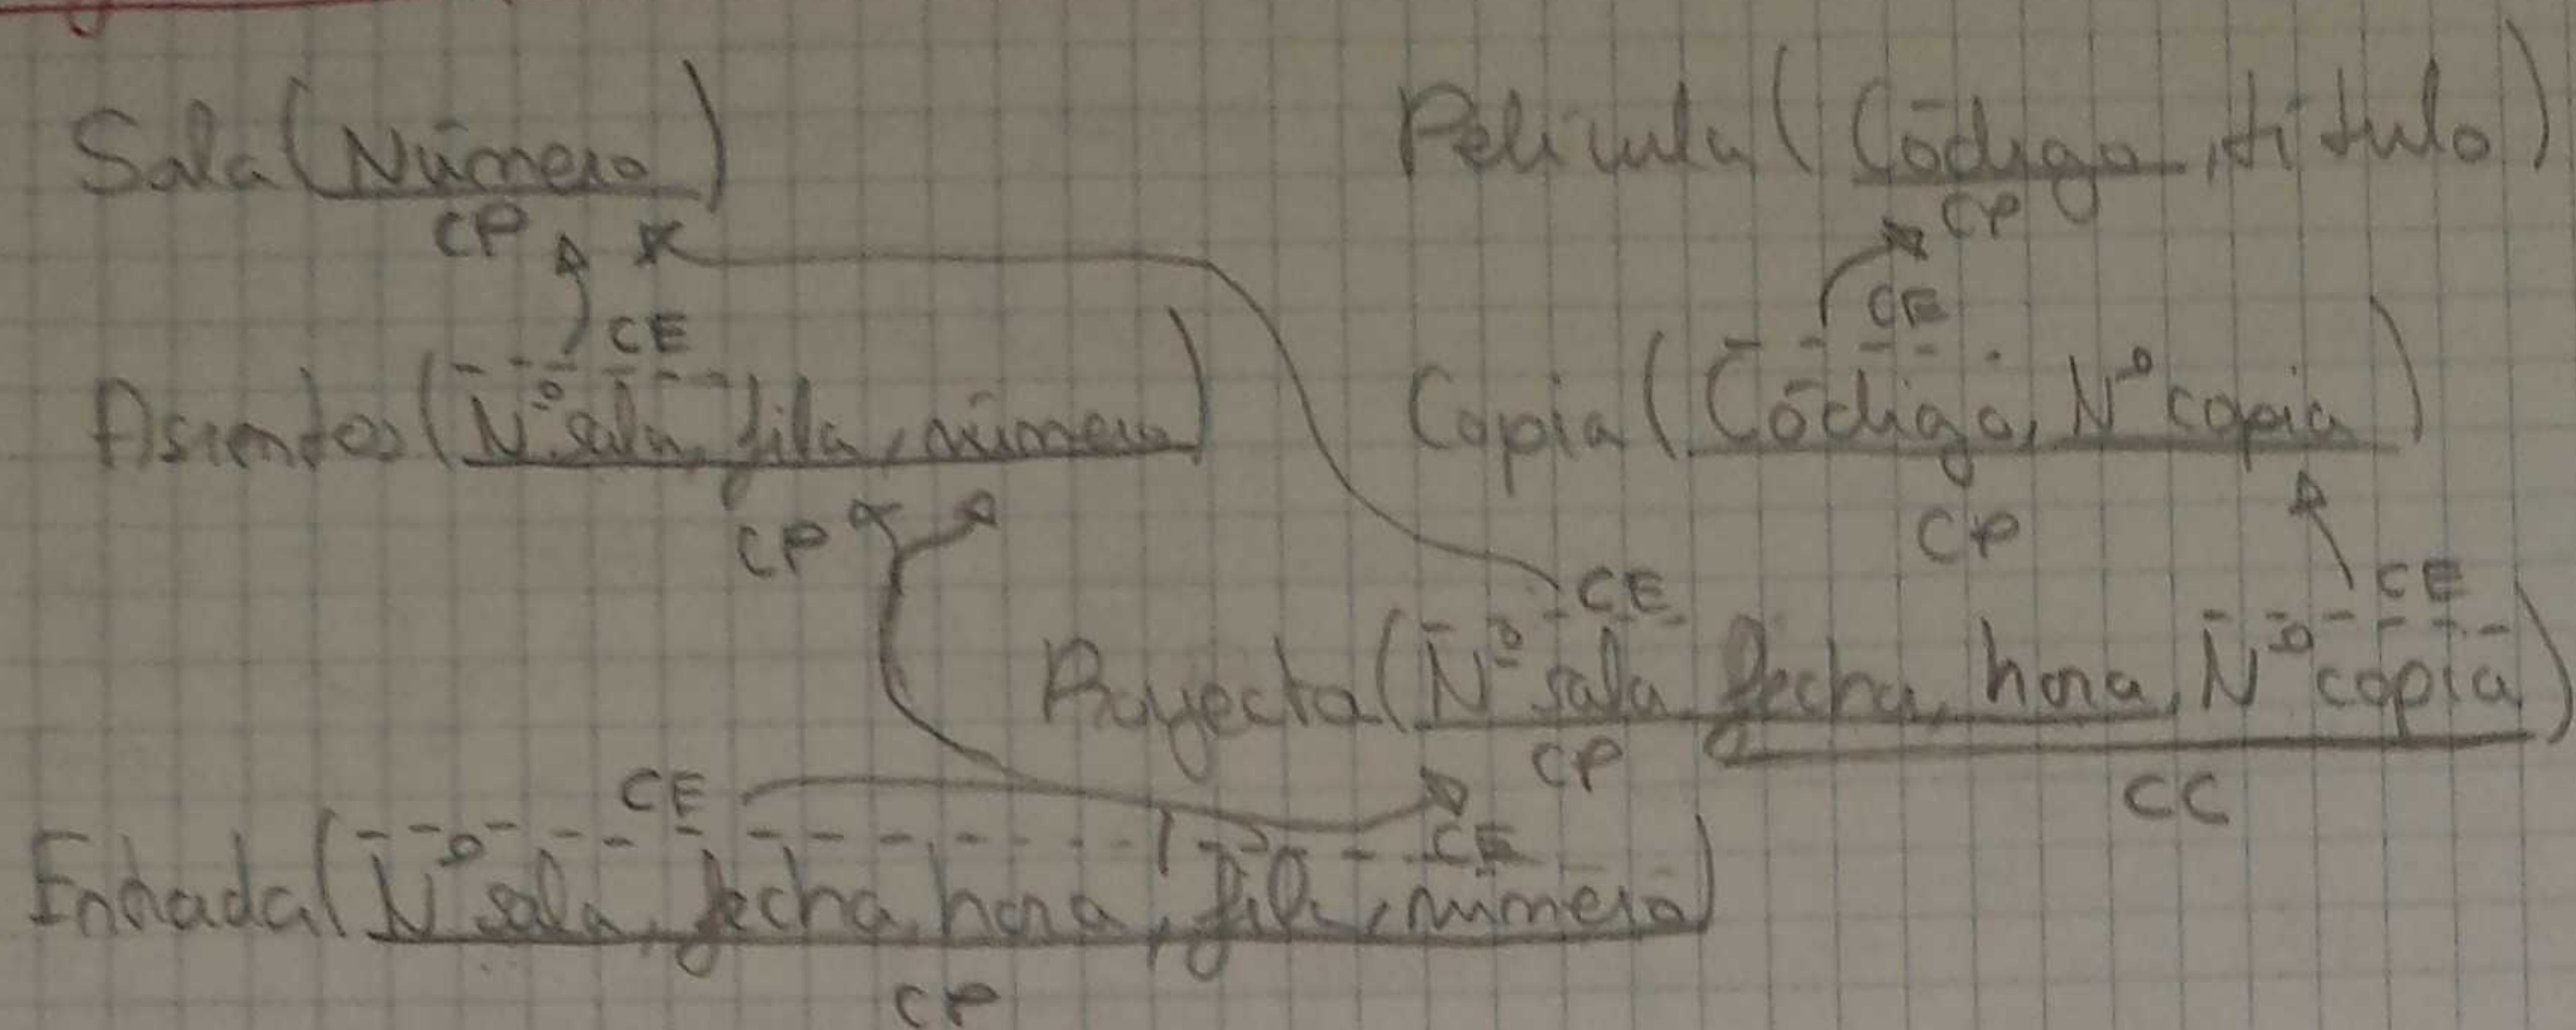 Sala (Número)
CP
Película (Código, título)
CP
CE
Asientos (Nº sala, fila, número)
CP
CE
Copia (Código, Nº copia)
CP
CE
CE
Proyecta (Nº sala fecha, hora, Nº copia)
CP
CC
CE
CE
Entrada (Nº sala, fecha, hora, fila, número)
CP